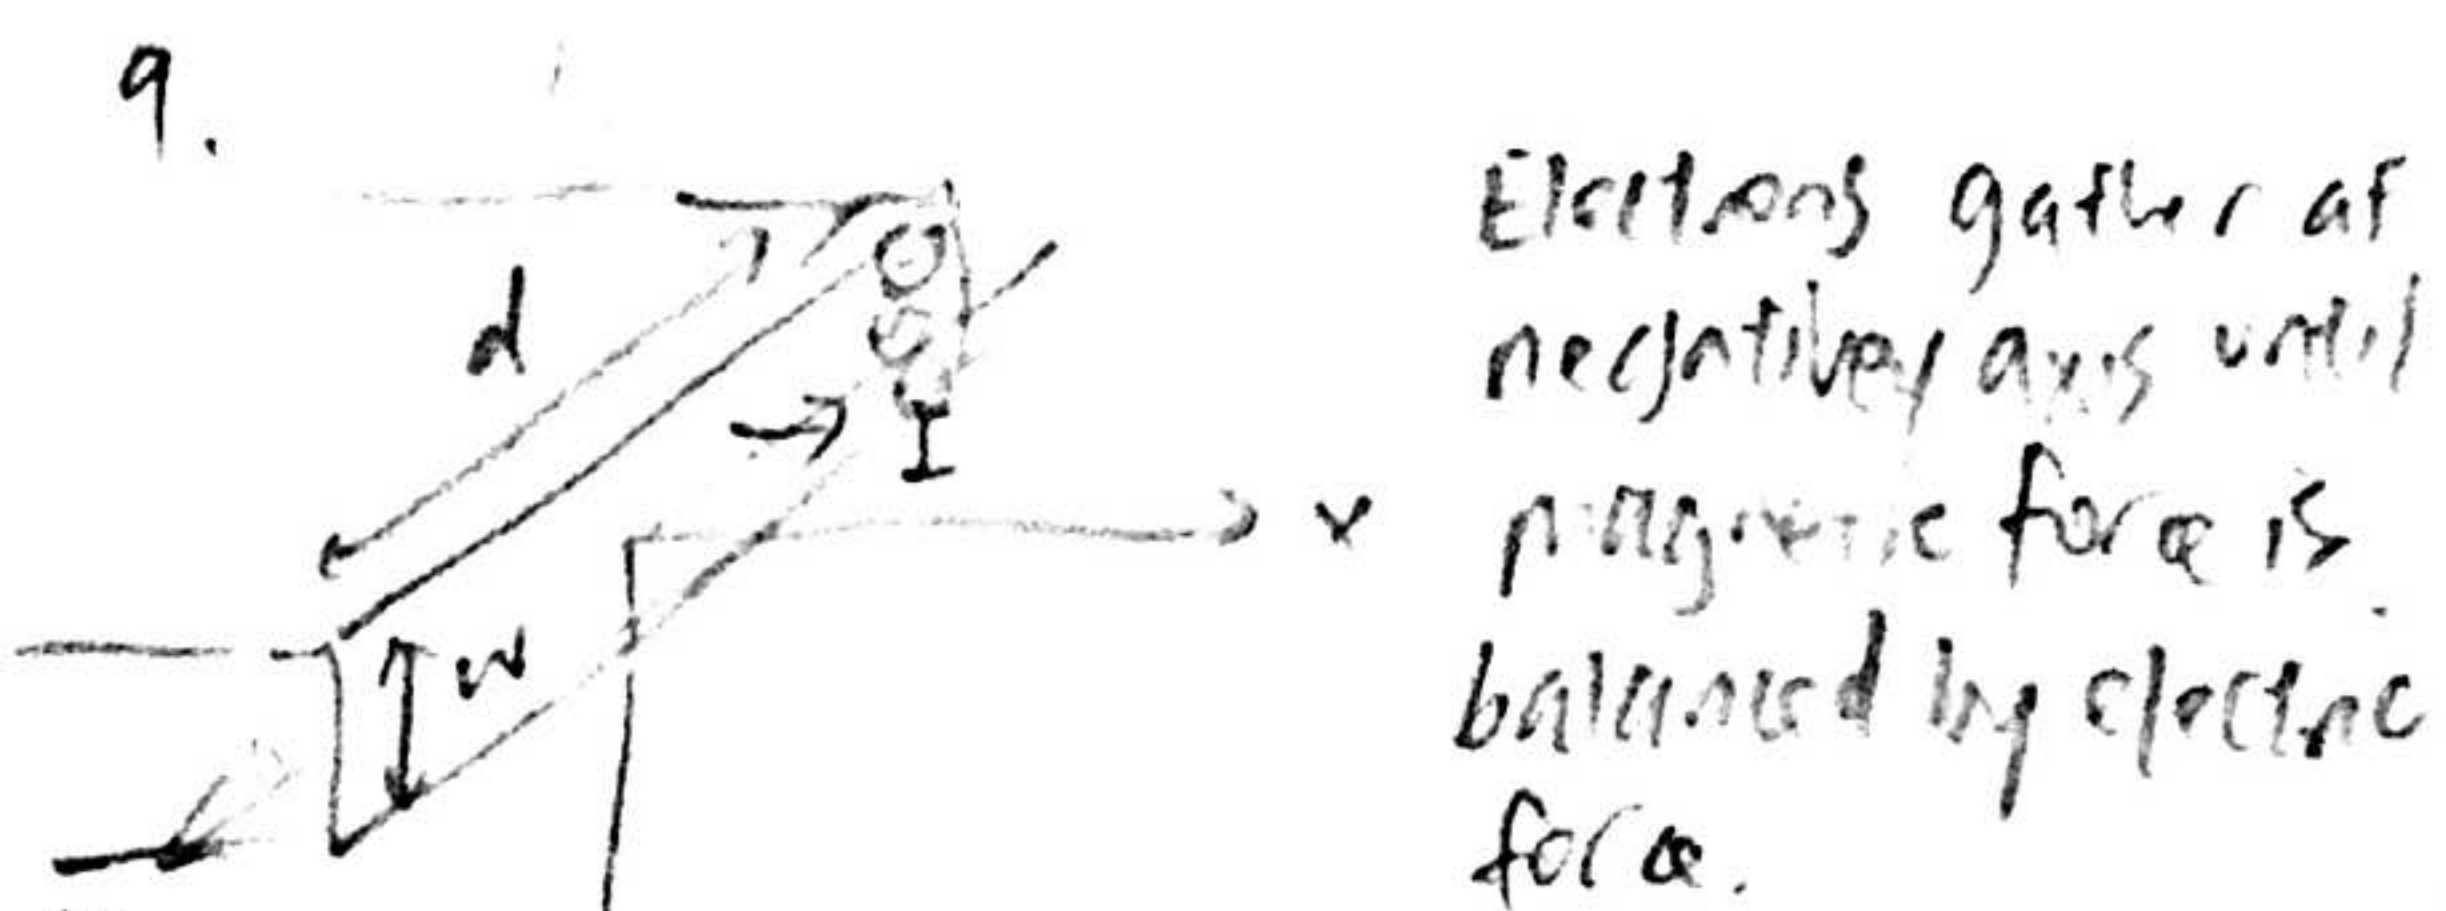 9.
d
I
x
w
Electrons gather at
negative y axis until
magnetic force is
balanced by electric
force.